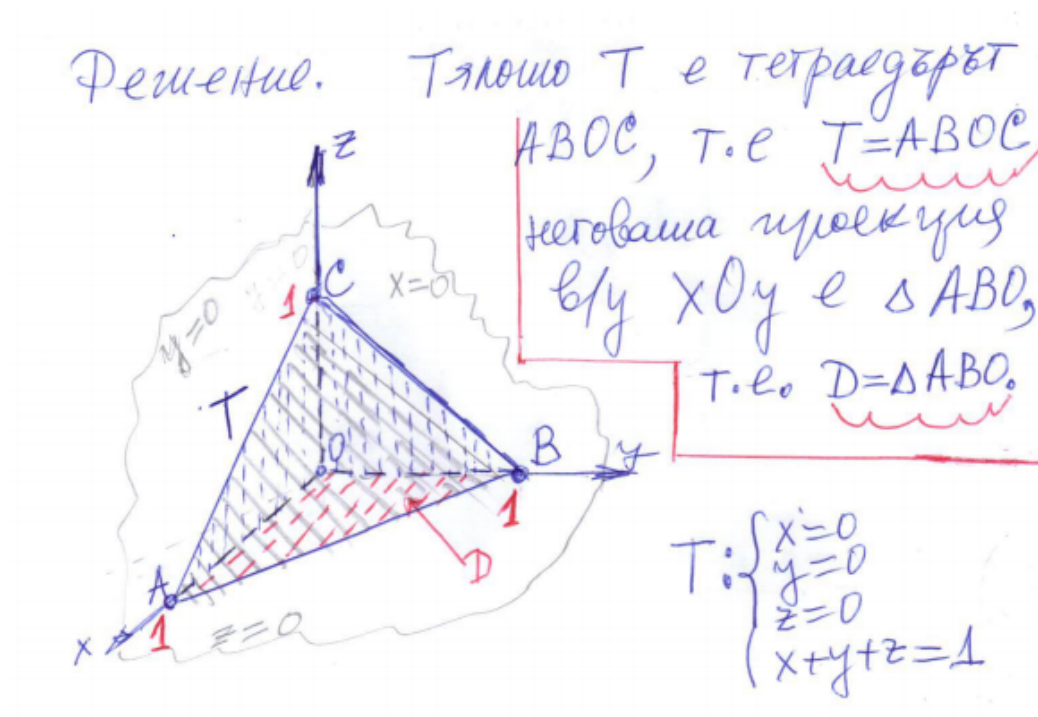 Решение. Тялото T е тетраедърът
ABOC, т.е T=ABOC,
неговата проекция
в/у xOy е ΔABO,
т.е. D=ΔABO.
z
1 C
x=0
y=0
T
O
B
y
1
A
1
x
z=0
D
T: { x=0
y=0
z=0
x+y+z=1